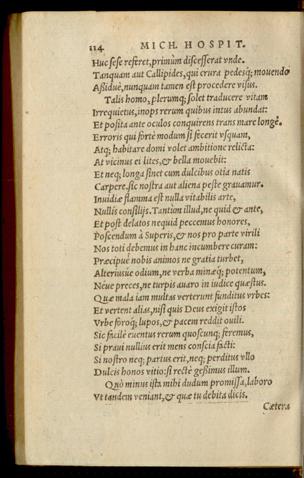 114 MICH. HOSPIT.
Huc sese referet, primùm discesserat vnde.
Tanquam aut Callipides, qui crura pedesq; mouendo
Aßiduè, nunquam tamen est procedere visus.
Talis homo, plerumq; solet traducere vitam
Irrequietus, inops rerum quibus intus abundat:
Et posita ante oculos conquirens trans mare longè.
Erroris qui fortè modum si fecerit vsquam,
Atq; habitare domi volet ambitione relicta:
At vicinus ei lites, & bella mouebit:
Et neq; longa sinet cum dulcibus otia natis
Carpere. sic nostra aut aliena peste grauamur.
Inuidiæ flamma est nulla vitabilis arte,
Nullis consilijs. Tantùm illud, ne quid & ante,
Et post delatos nequid peccemus honores,
Poscendum à Superis, & nos pro parte virili
Nos toti debemus in hanc incumbere curam:
Præcipuè nobis animos ne gratia turbet,
Alteriusúe odium, ne verba minæq; potentum,
Néue preces, ne turpis auaro in iudice quæstus.
Quæ mala iam multas verterunt funditus vrbes:
Et vertent alias, nisi quis Deus exigit istos
Vrbe foroq; lupos, & pacem reddit ouili.
Sic facilè euentus rerum quoscunq; feremus,
Si praui nullius erit mens conscia facti:
Si nostro neq; partus erit, neq; perditus vllo
Dulcis honos vitio: si rectè geßimus illum.
Quò minus ista mihi dudum promissa, laboro
Vt tandem veniant, & quæ tu debita dicis.
Cætera